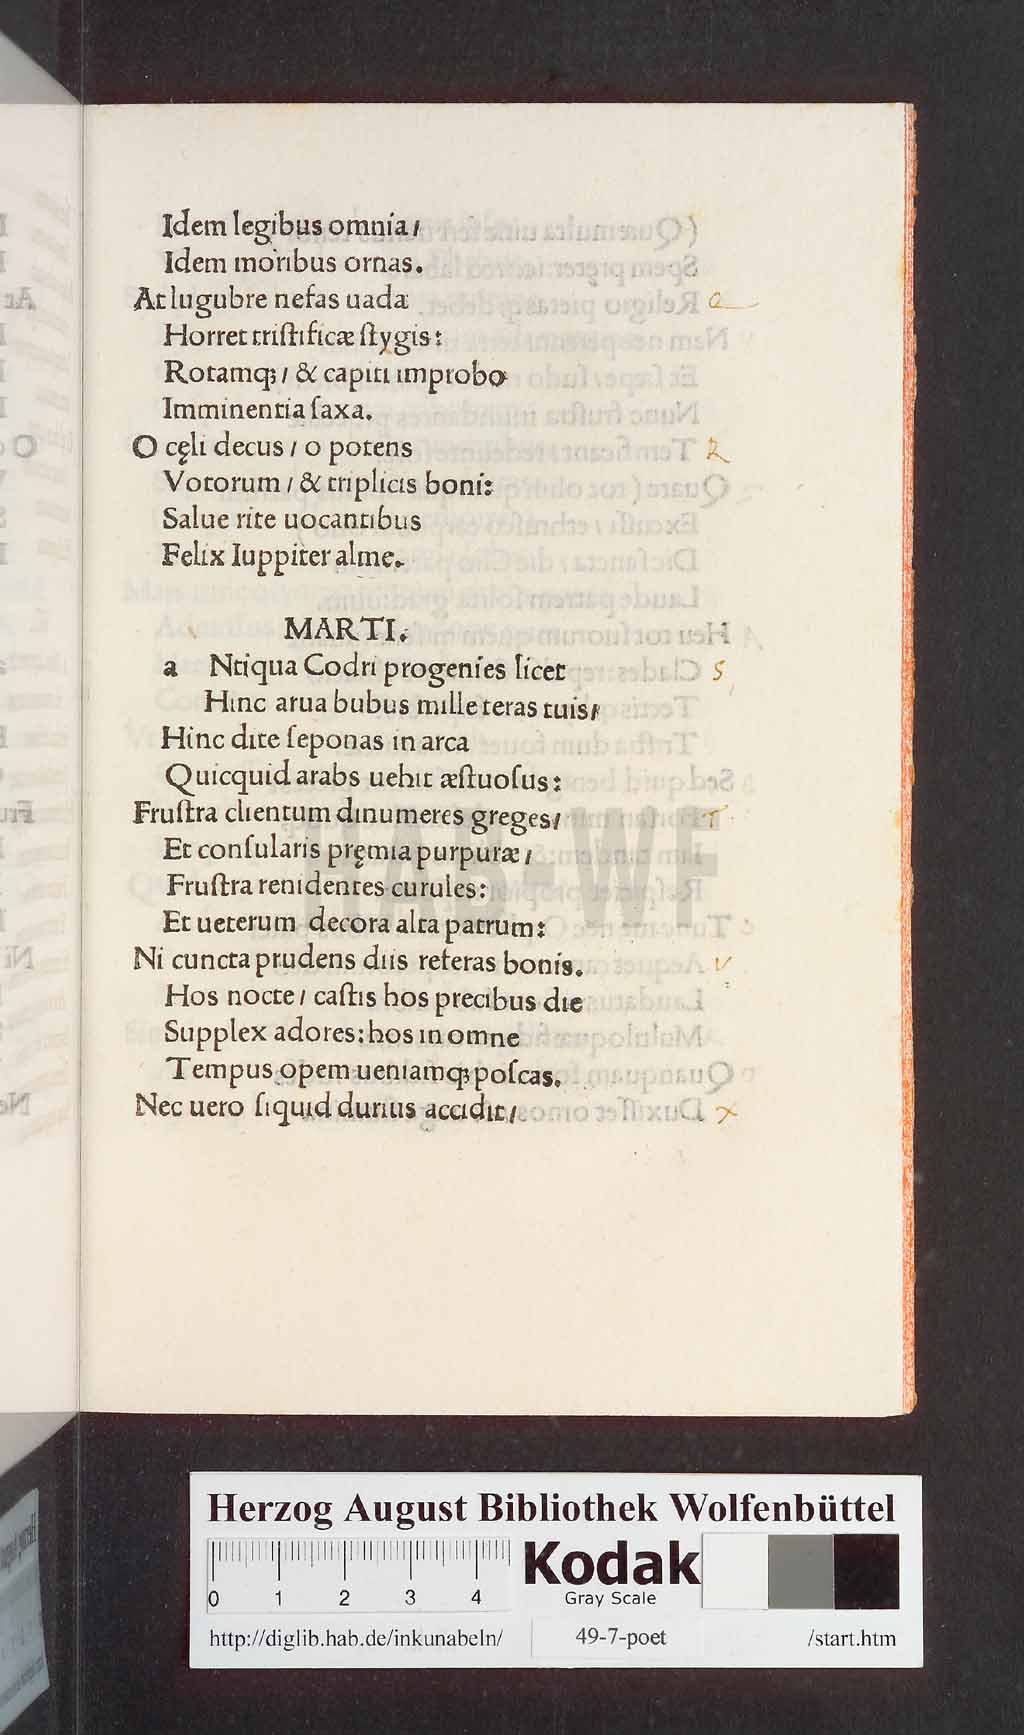 Idem legibus omnia/
Idem moribus ornas.
At lugubre nefas uada
Horret tristificæ stygis:
Rotamq;/ & capiti improbo
Imminentia saxa.
O cęli decus / o potens
Votorum / & triplicis boni:
Salue rite uocantibus
Felix Iuppiter alme.
MARTI.
a Ntiqua Codri progenies licet
Hinc arua bubus mille teras tuis/
Hinc dite seponas in arca
Quicquid arabs uehit æstuosus:
Frustra clientum dinumeres greges/
Et consularis pręmia purpuræ /
Frustra renidentes curules:
Et ueterum decora alta patrum:
Ni cuncta prudens diis referas bonis.
Hos nocte / castis hos precibus die
Supplex adores: hos in omne
Tempus opem ueniamq; poscas.
Nec uero siquid durius accidit/
HAB-WF
Herzog August Bibliothek Wolfenbüttel
0 1 2 3 4
Kodak
Gray Scale
http://diglib.hab.de/inkunabeln/ 49-7-poet /start.htm